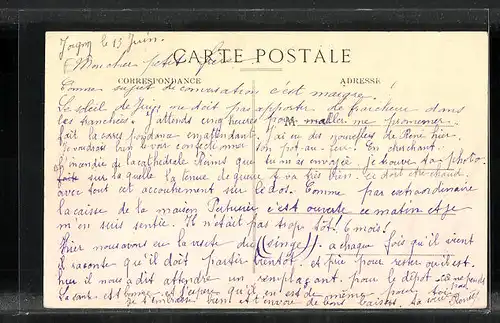 Joigny le 15 Juin.
CARTE POSTALE
Mon cher petit
CORRESPONDANCE
ADRESSE
Comme sujet de conversation c'est maigre!
Le soleil de Juin ne doit pas apporter de fraicheur dans
les tranchées. J'attends cinq heures pour m'aller me promener.
fait la correspondance en attendant. J'ai eu des nouvelles de René hier.
Je voudrais bien le voir confectionner son pot-au-feu! En cherchant
l'incendie de la cathédrale Reims que tu m'as envoyée, je trouve ta photo
sur laquelle la tenue de guerre te va très bien. Ce doit être chaud
avec tout cet accoutrement sur le dos. Comme par extraordinaire
la caisse de la maison s'est ouverte ce matin et je
m'en suis sentie. Il n'était pas trop tôt! 6 mois!
Hier nous avons eu la visite du (singe) a chaque fois qu'il vient
il raconte qu'il doit partir bientôt. et puis pour rester où il est.
hier il nous a dit attendre un remplaçant. pour le dépôt
La santé est bonne et j'espère qu'il en est de même pour toi
Je t'embrasse bien et t'envoie de bons baisers.